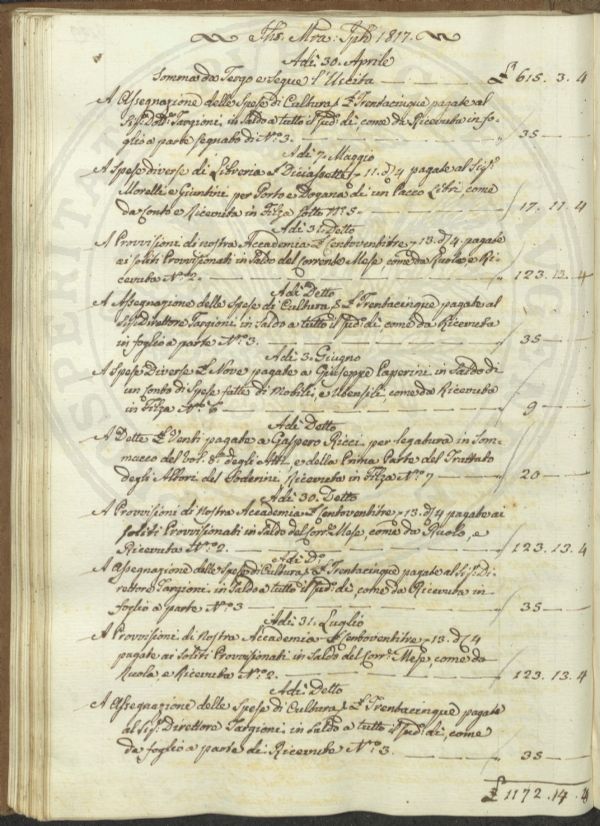 Jhs. Mra: Jph 1817.
Adì 30. Aprile
Somma da Tergo e segue l'Uscita £ 615. 3. 4
A Assegnazione delle Spese di Cultura £ Trentacinque pagate al
Sig. Dott. Targioni, in Saldo a tutto il sud. dì, come da Ricevuta in fo-
glio a parte segnato di N.° 3. 35 —
Adì 7. Maggio
A Spese diverse di Libreria £ Diciassette 11. d/4 pagate al Sig.
Morelli e Giuntini per Porto e Dogana di un Pacco Libri come
da Conto e Ricevuta in Filza sotto N.° 5. 17. 11. 4
Adì 31. Detto
A Provvisioni di nostra Accademia £ Centoventitre 13. d/4. pagate
ai soliti Provvisionati in Saldo del corrente Mese come da Ruolo e Ri-
cevuta N.° 2. 123. 13. 4
Adì Detto
A Assegnazione delle Spese di Cultura £ Trentacinque pagate al
Sig. Direttore Targioni in Saldo a tutto il sud. dì, come da Ricevuta
in foglio a parte N.° 3. 35 —
Adì 3. Giugno
A Spese Diverse £ Nove pagate a Giuseppe Paperini in Saldo di
un Conto di Spese fatte di Mobili, e Utensili, come da Ricevuta
in Filza N.° 6 9 —
Adì Detto
A Dette £ Venti pagate a Gaspero Ricci per legatura in Som-
macco del Vol. 8.° degli Atti, e della Prima Parte del Trattato
degli Alberi del Soderini, Ricevuta in Filza N.° 7 20 —
Adì 30. Detto
A Provvisioni di Nostra Accademia £ Centoventitre 13. d/4 pagate ai
soliti Provvisionati in Saldo del Corr. Mese, come da Ruolo, e
Ricevuta N.° 2. 123. 13. 4
Adì D.°
A Assegnazione delle Spese di Cultura £ Trentacinque pagate al Sig. Di-
rettore Targioni, in Saldo a tutto il sud. dì come da Ricevuta in
foglio a parte N.° 3 35 —
Adì 31. Luglio
A Provvisioni di Nostra Accademia £ Centoventitre 13. d/4
pagate ai Soliti Provvisionati in Saldo del Corr. Mese, come da
Ruolo e Ricevuta N.° 2. 123. 13. 4
Adì Detto
A Assegnazione delle Spese di Cultura £ Trentacinque pagate
al Sig. Direttore Targioni, in Saldo a tutto il sud. dì, come
da foglio a parte di Ricevute N.° 3. 35 —
£ 1172. 14. 8